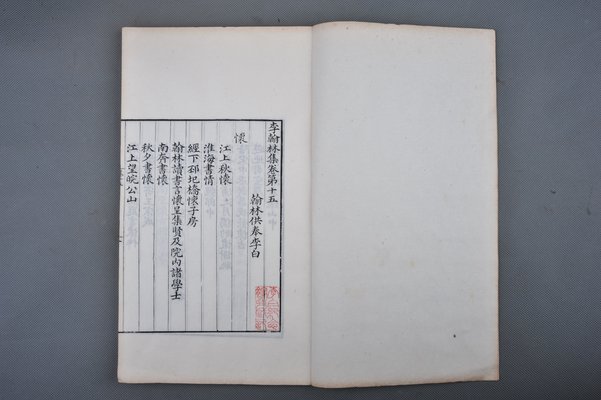 李翰林集卷第十五
翰林供奉李白
懷
江上秋懷
淮海書情
經下邳圯橋懷子房
翰林讀書言懷呈集賢及院內諸學士
南齊書懷
秋夕書懷
江上望皖公山